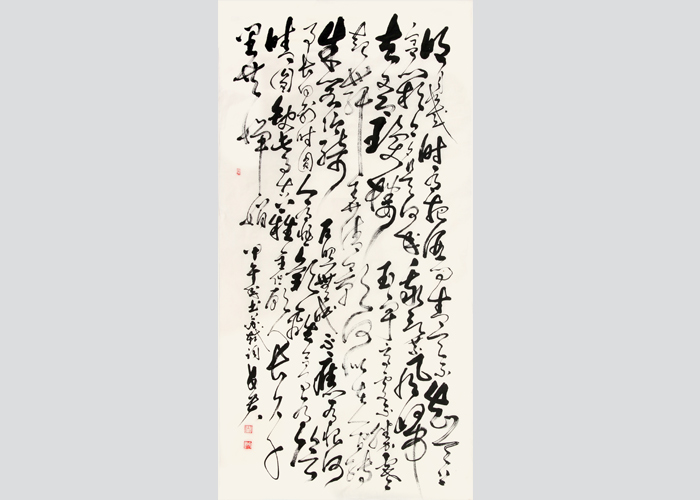 明月几时有把酒问青天不知天上
宫阙今夕是何年我欲乘风归
去又恐琼楼玉宇高处不胜寒
起舞弄清影何似在人间转
朱阁低绮户照无眠不应有恨何
事长向别时圆人有悲欢离合月有阴
晴圆缺此事古难全但愿人长久千
里共婵娟
甲午书东坡词